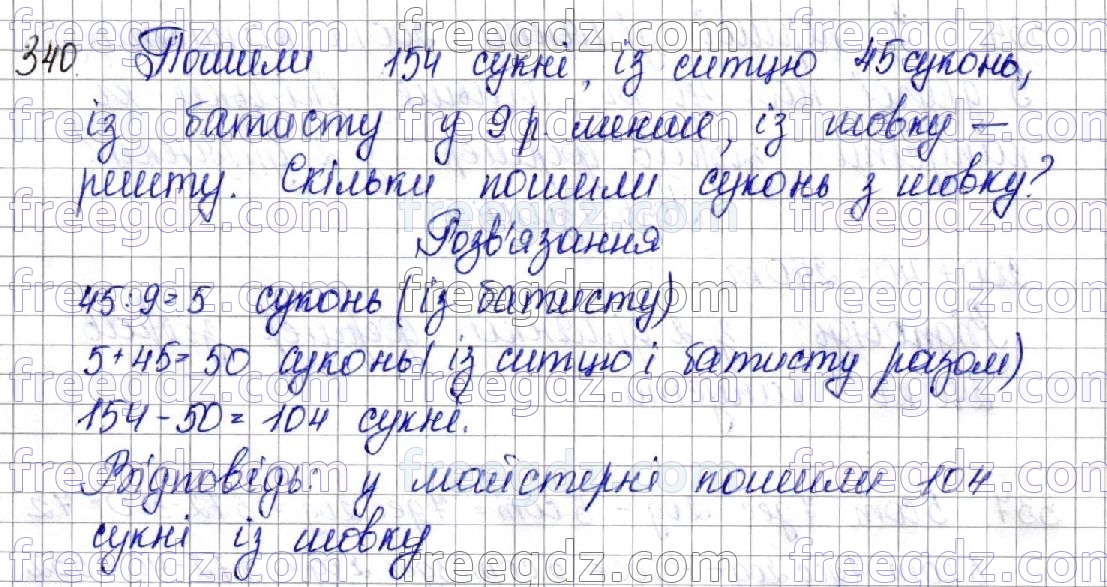 340. Пошили 154 сукні, із ситцю 45 суконь,
із батисту у 9 р. менше, із шовку —
решту. Скільки пошили суконь з шовку?
Розв'язання
45:9=5 суконь (із батисту)
5+45=50 суконь (із ситцю і батисту разом)
154-50=104 сукні.
Відповідь: у майстерні пошили 104
сукні із шовку